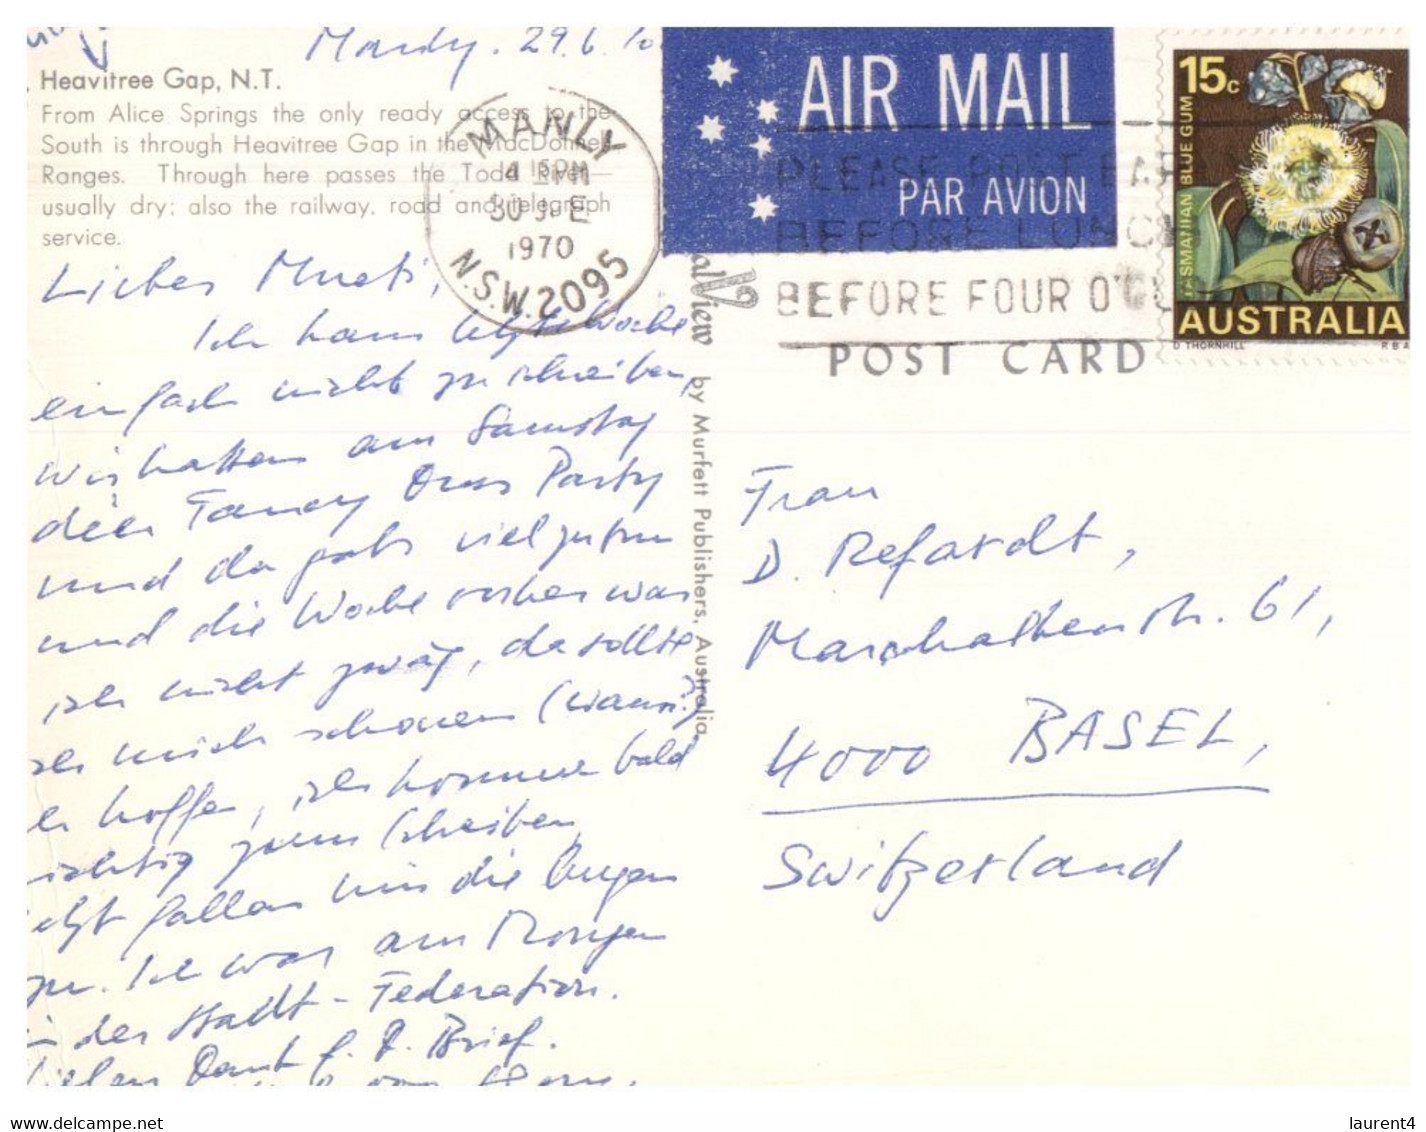 Manly. 29.6.70
Heavitree Gap, N.T.
From Alice Springs the only ready access to the
South is through Heavitree Gap in the MacDonnell
Ranges. Through here passes the Todd River—
usually dry; also the railway, road and telegraph
service.
MANLY
4 15PM
30 JNE
1970
N.S.W. 2095
AIR MAIL
PAR AVION
PLEASE POST EARLY
BEFORE LUNCH
BEFORE FOUR O'C
15c
TASMANIAN BLUE GUM
AUSTRALIA
D THORNHILL RBA
POST CARD
alView by Murfett Publishers, Australia.
Liebes Mueti,
Ich kam letzte Woche
einfach nicht zu schreiben,
wir hatten am Samstag
die Fancy Dress Party
und da gabs viel zu tun
und die Woche vorher war
ich nicht zwäg, da sollte
ich mich schonen (wann?)
hoffen, ich komme bald
richtig zum Schreiben,
jetzt fallen mir die Augen
zu. Ich war am Morgen
in der Stadt - Federation.
Vielen Dank f. D. Brief.
Frau
D. Refardt,
Marschalkenstr. 61,
4000 BASEL,
Switzerland
www.delcampe.net
laurent4